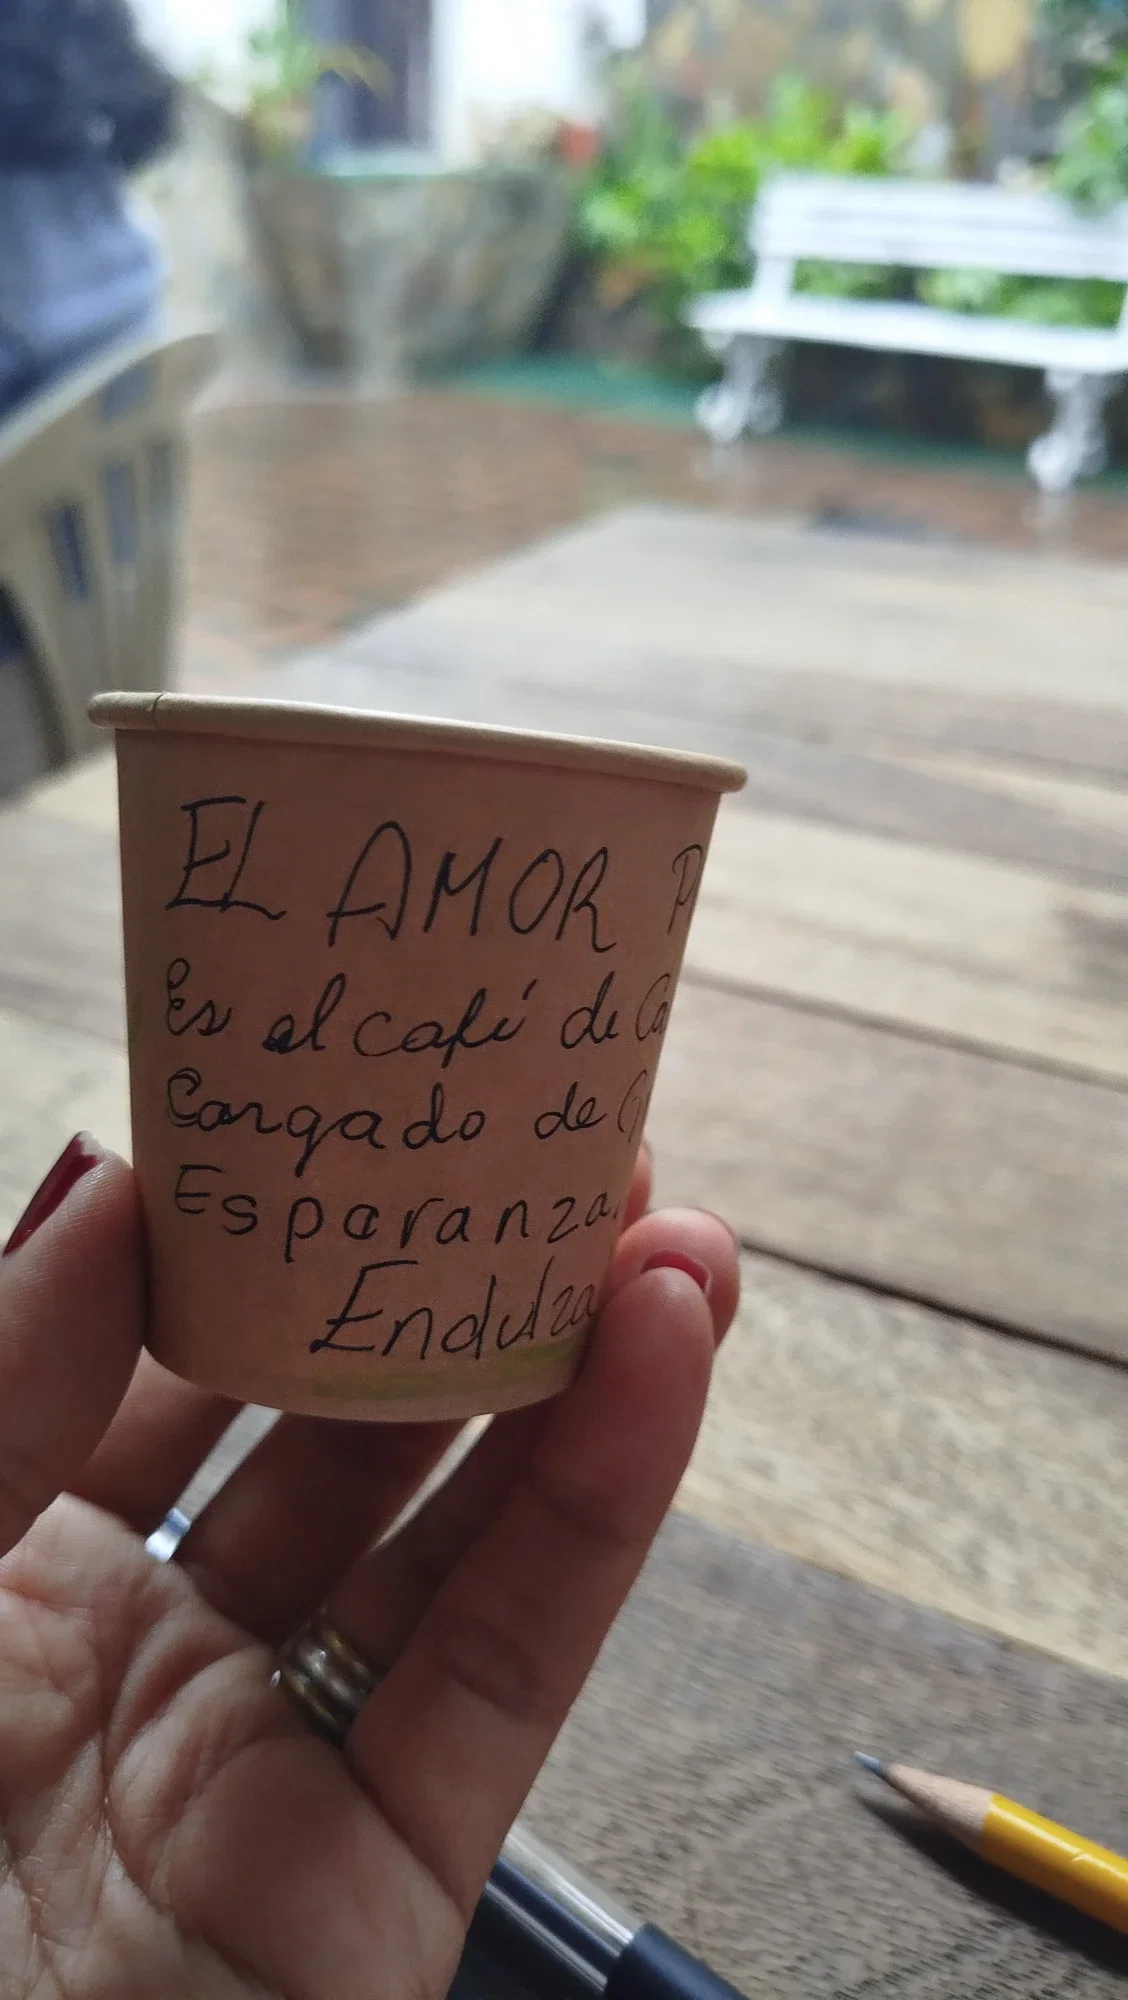 EL AMOR
Es el café de
Cargado de
Esperanza.
Endulza